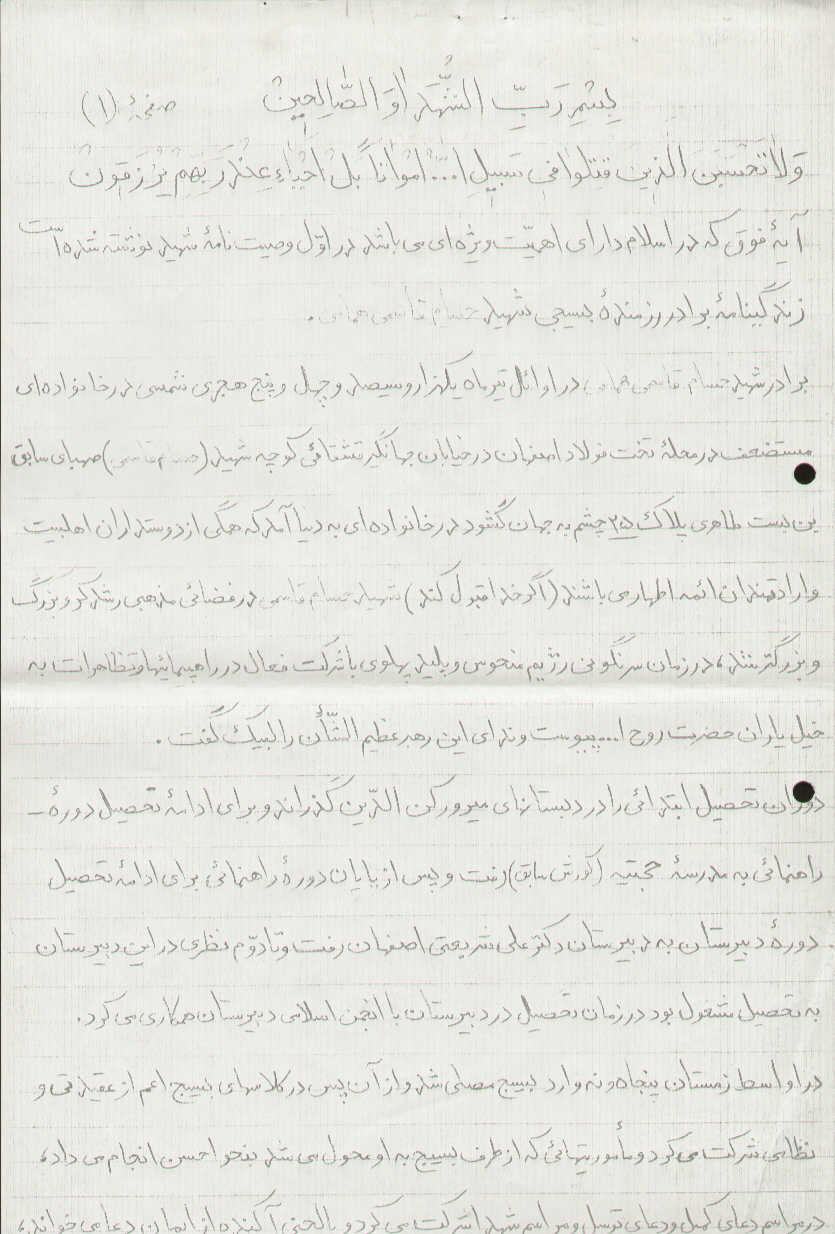 بِسْمِ رَبِّ الشُّهَدٰاوَالصّٰالِحیٖنْ صفحهٔ (۱)
وَلاٰتَحْسَبَنَ الَّذینَ قتلوٰا فیٖ سَبیٖلِ ا... اَمْوٰاتاً بَلْ اَحْیٰاءِعِنْدَرَبِهِمْ یُرْزَقوُنْ
آیهٔ فوق که در اسلام دارای اهمیّت ویژه‌ای می باشد در اوّل وصیت نامهٔ شهید نوشته شده است
زندگینامهٔ برادر رزمندهٔ بسیجی شهید حسام قاسمی همامی.
برادر شهید حسام قاسمی همامی در اوائل تیرماه یکهزاروسیصد و چهل و پنج هجری شمسی در خانواده ای
مستضعف در محلهٔ تخت فولاد اصفهان در خیابان جهانگیر قشقائی کوچه شهید (حسام قاسمی) صهبای سابق
بن بست طاهری پلاک ۲۵ چشم به جهان گشود در خانواده ای به دنیا آمد که همگی از دوستداران اهلبیت
وارادتمندان ائمه اطهار می باشند (اگر خدا قبول کند) شهید حسام قاسمی در فضائی مذهبی رشد کرد و بزرگ
و بزرگتر شد، در زمان سرنگونی رژیم منحوس و پلید پهلوی با شرکت فعال در راهپیمائیها وتظاهرات به
خیل یاران حضرت روح ا... پیوست و ندای این رهبر عظیم الشّأن را لبیک گفت.
دوران تحصیل ابتدائی را در دبستانهای میر و رکن الدّین گذراند و برای ادامهٔ تحصیل دورهٔ -
راهنمائی به مدرسهٔ حجتیه (کورش سابق) رفت و پس از پایان دورهٔ راهنمائی، برای ادامهٔ تحصیل
دورهٔ دبیرستان به دبیرستان دکتر علی شریعتی اصفهان رفت و تا دوّم نظری در این دبیرستان
به تحصیل مشغول بود در زمان تحصیل در دبیرستان با انجمن اسلامی دبیرستان همکاری می کرد.
در اواسط زمستان پنجاه و نه وارد بسیج مصلی شد و از آن پس در کلاسهای بسیج اعم از عقیدتی و
نظامی شرکت می کرد و مأموریتهائی که از طرف بسیج به او محول می شد بنحو احسن انجام می داد،
در مراسم دعای کمیل و دعای توسل و مراسم شهدا شرکت می کرد و با لحنی آکنده از ایمان دعا می خواند،